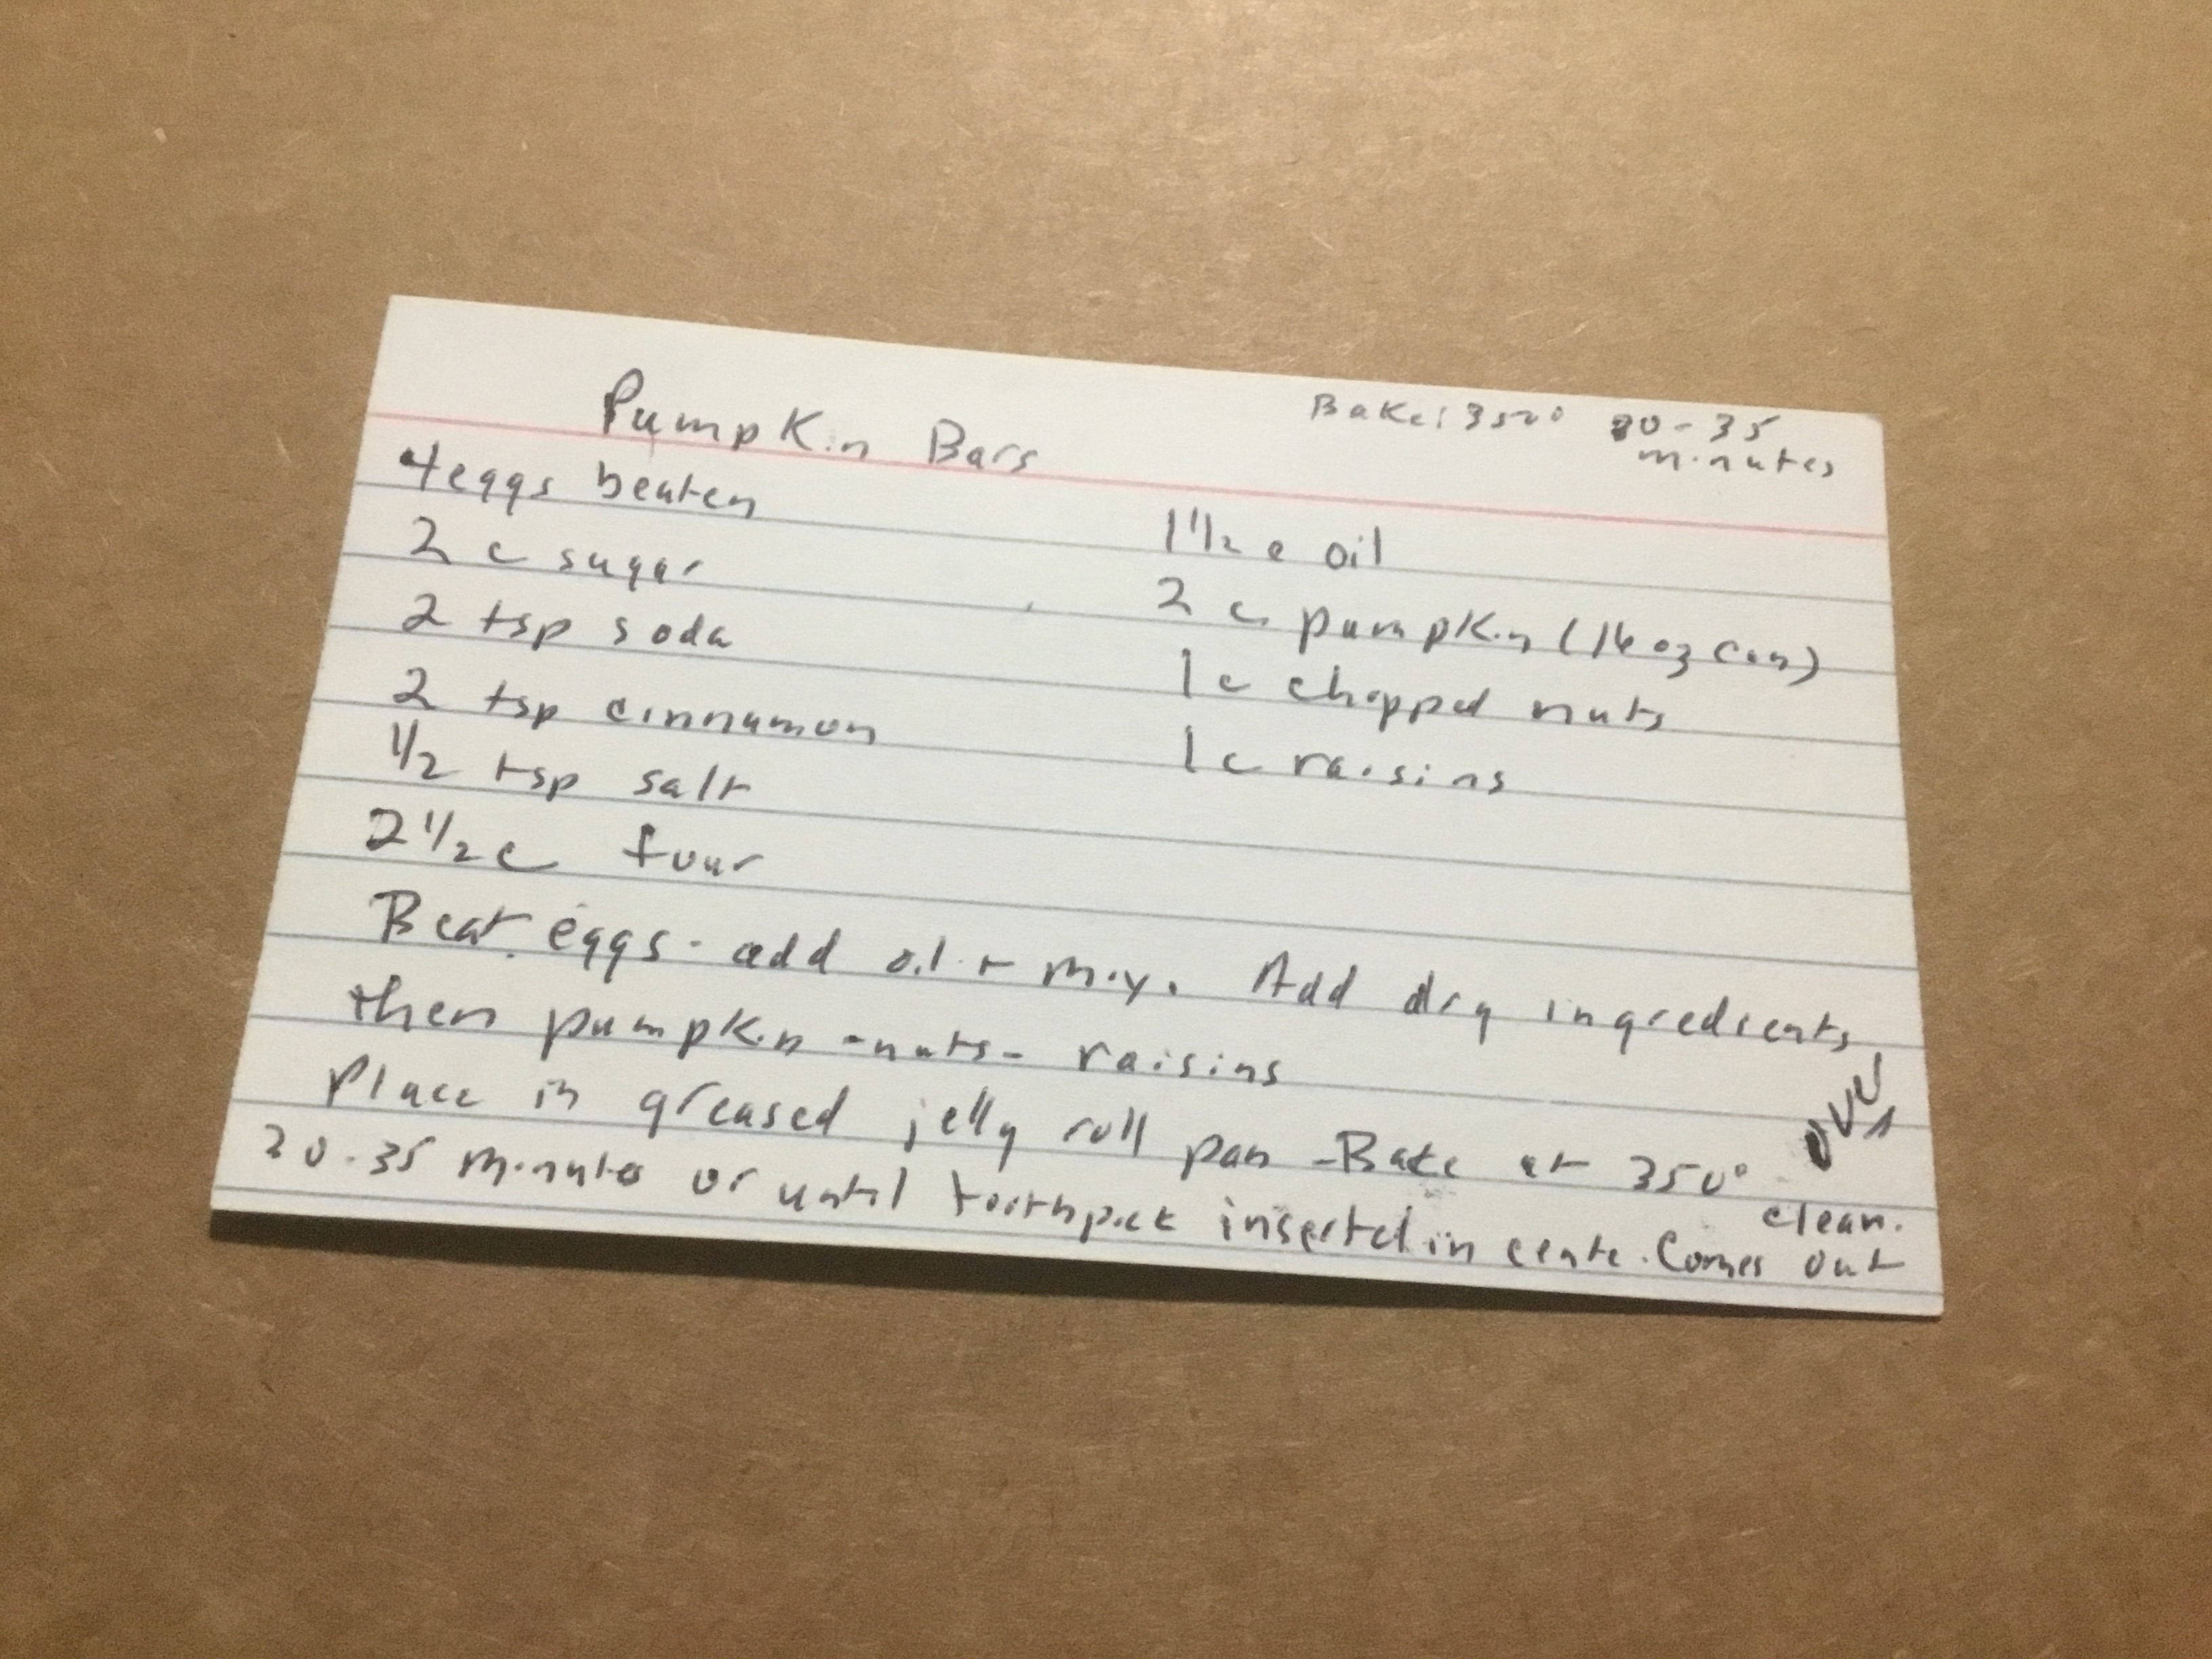 Pumpkin Bars
Bake: 350° 20-35
minutes
4 eggs beaten
2 c sugar
2 tsp soda
2 tsp cinnamon
1/2 tsp salt
2 1/2 c four
1 1/2 c oil
2 c pumpkin (16 oz can)
1 c chopped nuts
1 c raisins
Beat eggs - add oil + mix. Add dry ingredients,
then pumpkin - nuts - raisins
Place in greased jelly roll pan - Bake at 350°
20-35 minutes or until toothpick inserted in cente. Comes out
clean.
over